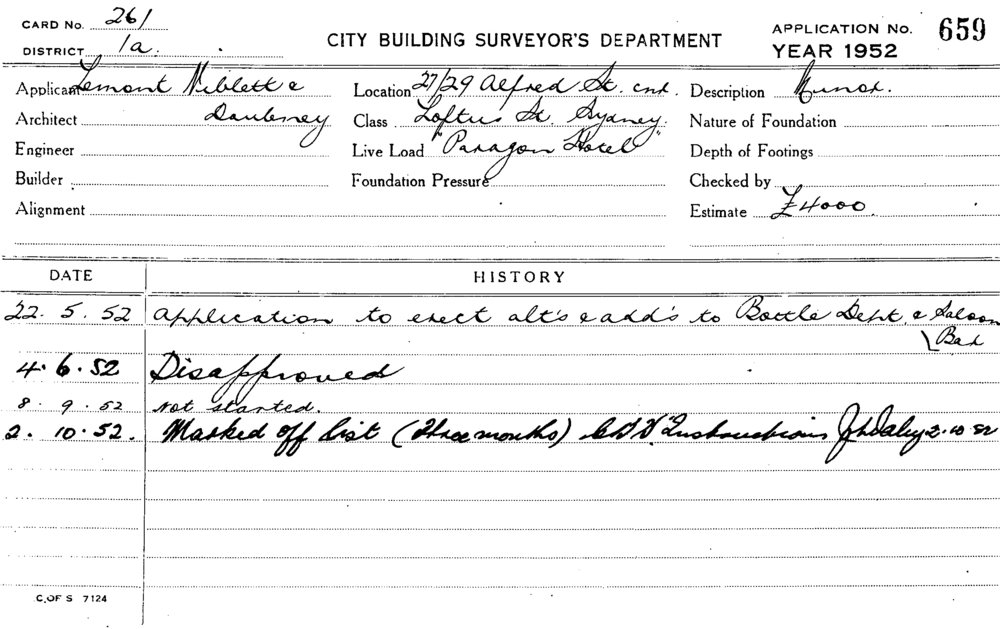 CARD No. 261
DISTRICT 1a.
CITY BUILDING SURVEYOR'S DEPARTMENT
APPLICATION No. 659
YEAR 1952
Applicant Lemont Niblett &
Architect Daubney
Engineer
Builder
Alignment
Location 27/29 Alfred St. cnr.
Class Loftus St. Sydney.
Live Load "Paragon Hotel"
Foundation Pressure
Description Minor.
Nature of Foundation
Depth of Footings
Checked by
Estimate £4000.
DATE HISTORY
22. 5. 52 Application to erect alt's & add's to Bottle Dept. & Saloon
Bar
4. 6. 52 Disapproved
8. 9. 52 Not started.
2. 10. 52. Marked off list (three months) C.B.S. Instructions 2.10.52
C. OF S 7124